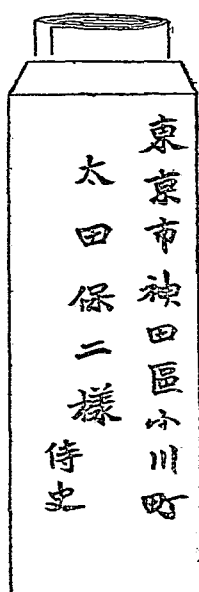 東京市神田區小川町
太田保二樣
侍史